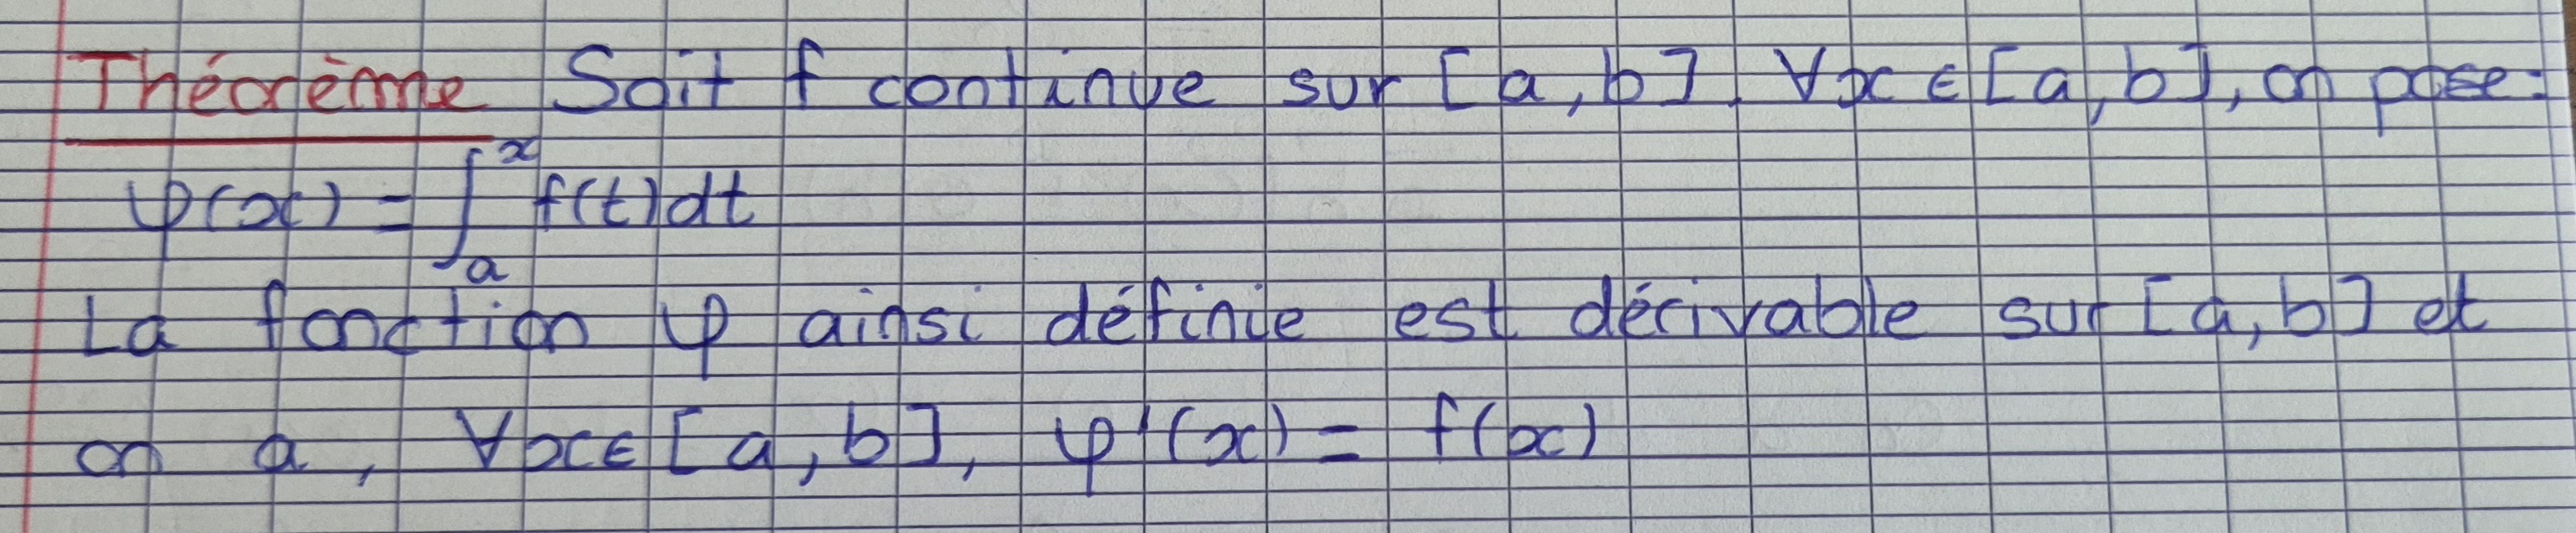 Théorème Soit f continue sur [a, b]. ∀x ∈ [a, b], on pose:
φ(x) = ∫ₐˣ f(t)dt
La fonction φ ainsi définie est dérivable sur [a, b] et
on a, ∀x ∈ [a, b], φ'(x) = f(x)